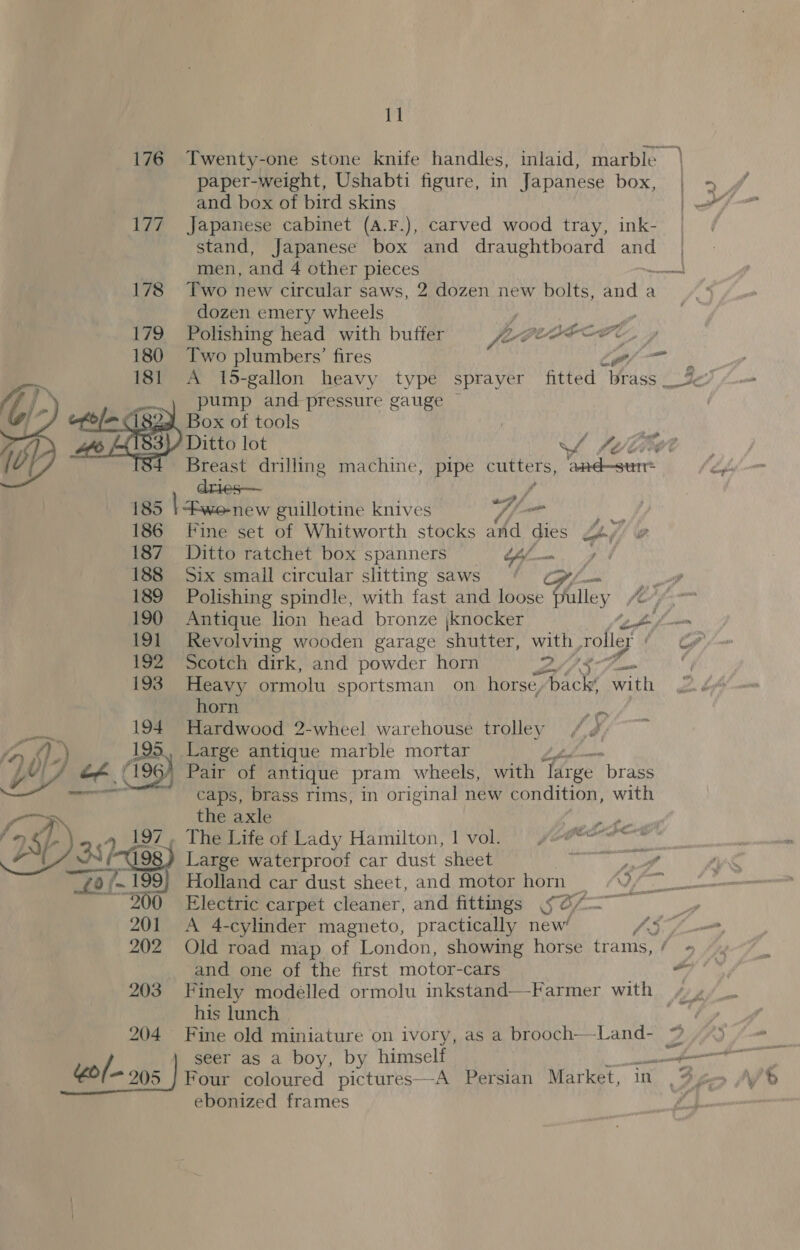 11
176 Twenty-one stone knife handles, inlaid, marble
paper-weight, Ushabti figure, in Japanese box,
and box of bird skins
177 Japanese cabinet (A.F.), carved wood tray, ink-
stand, Japanese box and draughtboard and
men, and 4 other pieces
178 Two new circular saws, 2 dozen new bolts, and a
dozen emery wheels
179 Polishing head with buffer
180 Two plumbers' fires
181 A 15-gallon heavy type sprayer fitted brass
pump and pressure gauge
182 Box of tools
183 Ditto lot
184 Breast drilling machine, pipe cutters, and sun-
dries—
185 Two new guillotine knives
186 Fine set of Whitworth stocks and dies
187 Ditto ratchet box spanners
188 Six small circular slitting saws
189 Polishing spindle, with fast and loose pulley
190 Antique lion head bronze knocker
191 Revolving wooden garage shutter, with roller
192 Scotch dirk, and powder horn
193 Heavy ormolu sportsman on horse back, with
horn
194 Hardwood 2-wheel warehouse trolley
195 Large antique marble mortar
196 Pair of antique pram wheels, with large brass
caps, brass rims, in original new condition, with
the axle
197 The Life of Lady Hamilton, 1 vol.
198 Large waterproof car dust sheet
199 Holland car dust sheet, and motor horn
200 Electric carpet cleaner, and fittings
201 A 4-cylinder magneto, practically new
202 Old road map of London, showing horse trams,
and one of the first motor-cars
203 Finely modelled ormolu inkstand—Farmer with
his lunch
204 Fine old miniature on ivory, as a brooch—Land-
seer as a boy, by himself
205 Four coloured pictures—A Persian Market, in
ebonized frames